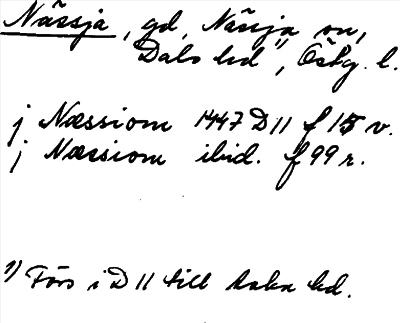 Nässja, gd, Nässja sn,
Dals hd 1), Östg. l.
j Næssiom 1447 D 11 f 15 v.
j Næssiom ibid. f 99 r.
1) Förs i D 11 till Aska hd.